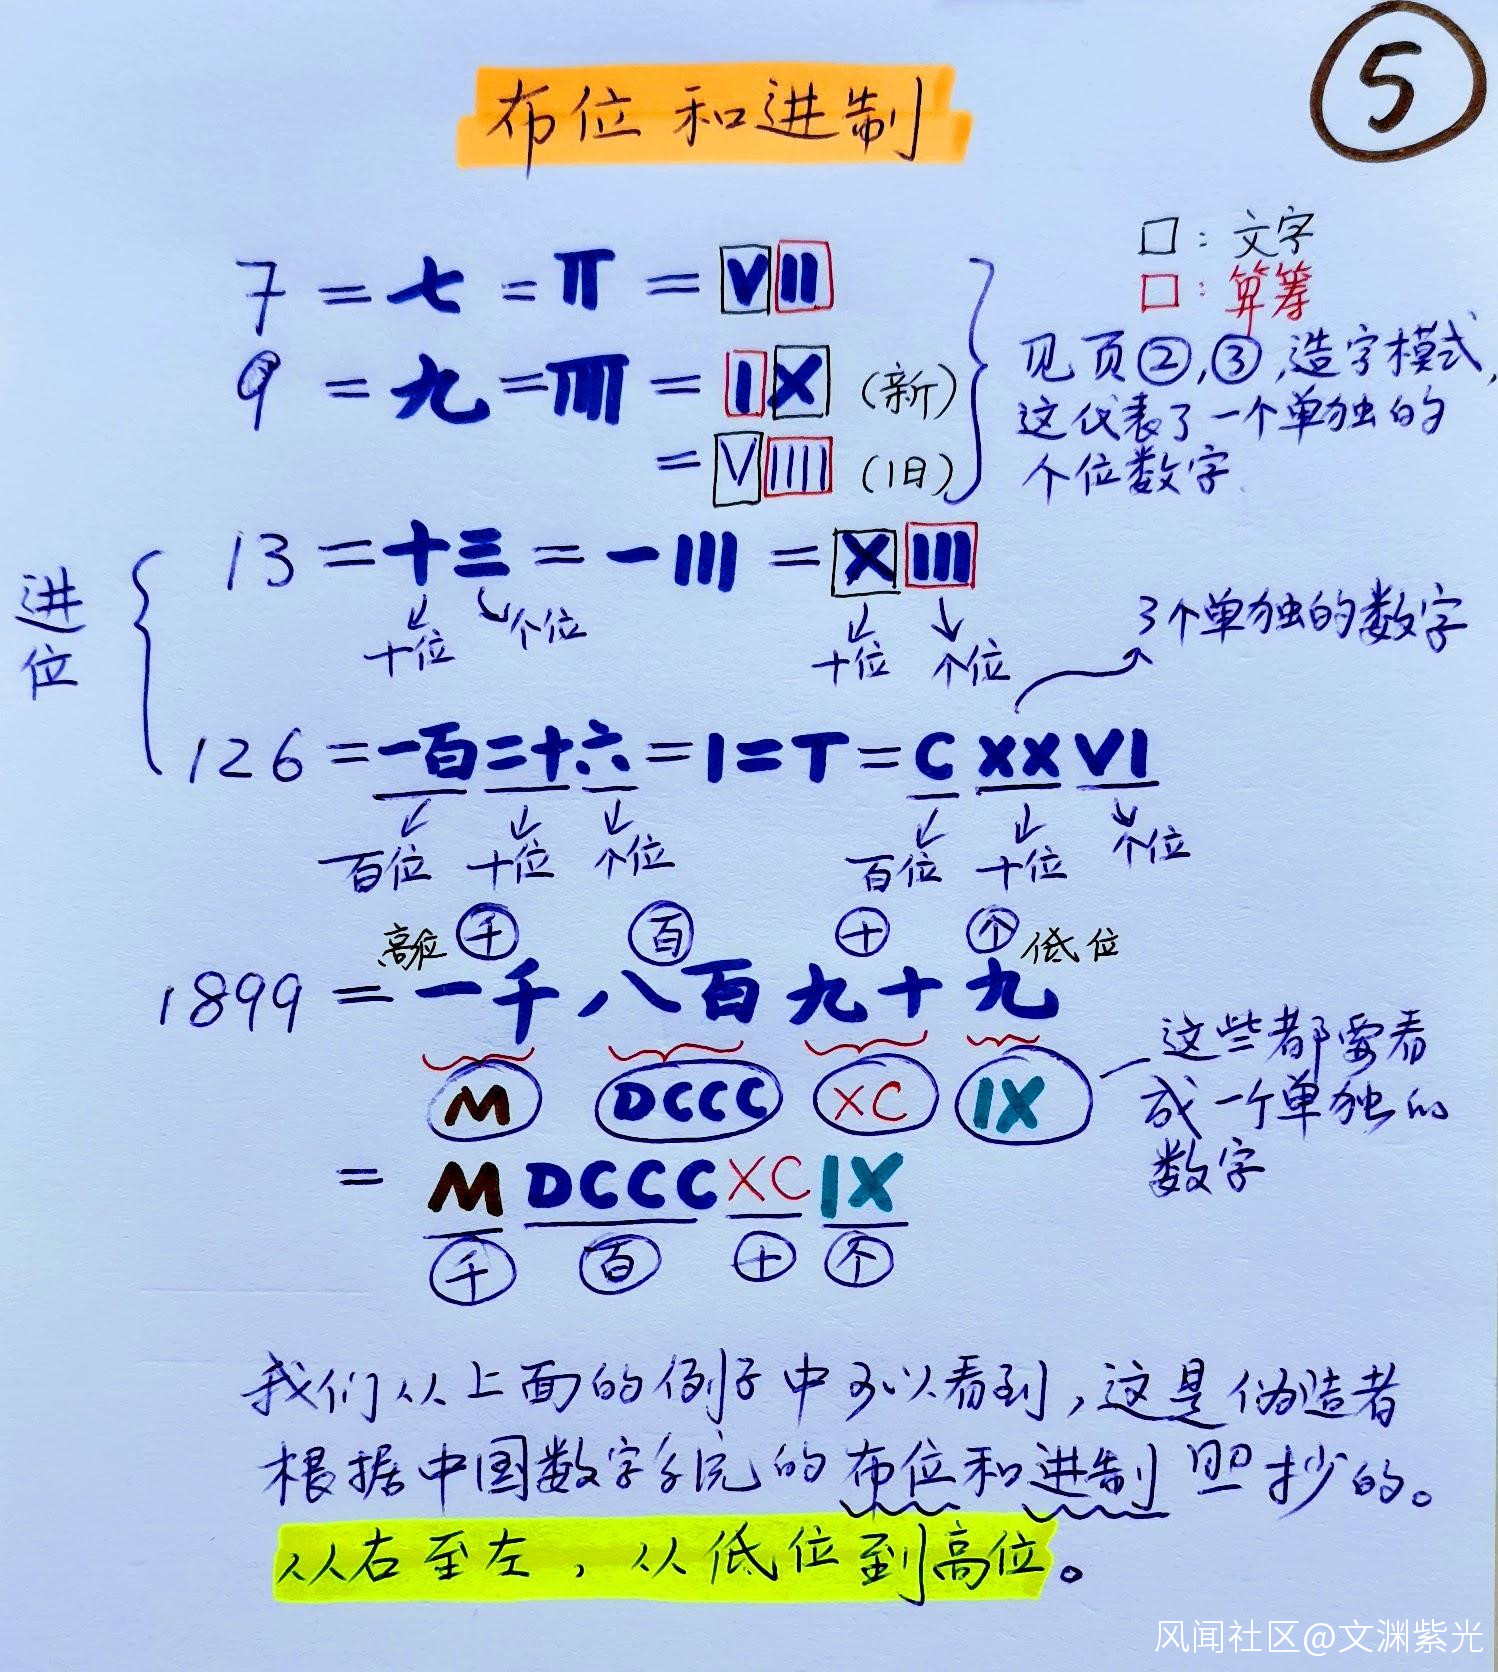 5
布位和进制
□：文字
□：算筹
7 = 七 = 𝍦 = VII
9 = 九 = 𝍨 = IX (新)
= VIIII (旧)
见页②,③,造字模式,
这代表了一个单独的
个位数字
进位
13 = 十三 = 一||| = XIII
十位 个位 十位 个位
3个单独的数字
126 = 一百二十六 = I=T = C XX VI
百位 十位 个位 百位 十位 个位
高位 千 百 十 个 低位
1899 = 一千八百九十九
M DCCC XC IX
这些都要看
成一个单独的
数字
= M DCCC XC IX
千 百 十 个
我们从上面的例子中可以看到,这是伪造者
根据中国数字系统的布位和进制照抄的。
从右至左，从低位到高位。
风闻社区@文渊紫光